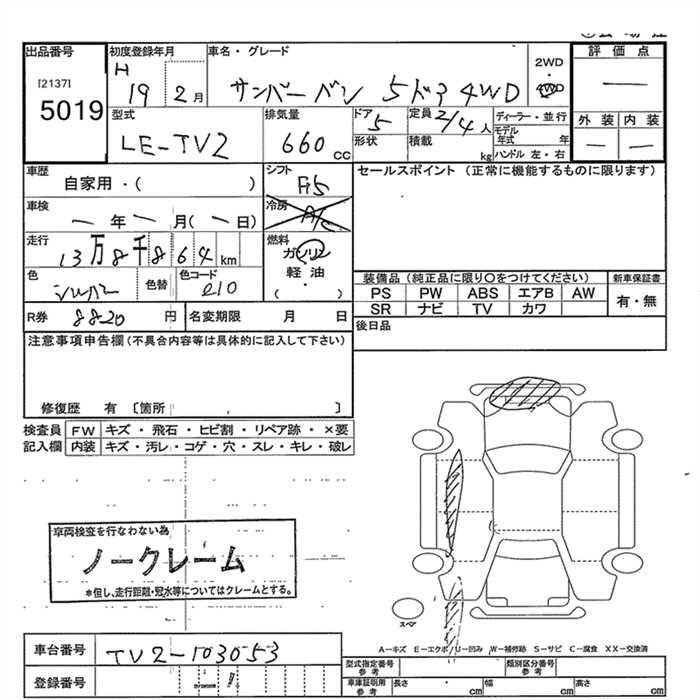 出品番号 初度登録年月 車名・グレード 2WD 評価点
[2137] H サンバーバン 5ドア 4WD 4WD —
5019 19 2月 外装 内装
型式 排気量 ドア 定員 ディーラー・並行 — —
LE-TV2 660cc 5 2/4人 モデル年式 年
形状 積載 kg ハンドル 左・右
車歴 シフト セールスポイント (正常に機能するものに限ります)
自家用・( ) F5
車検 冷房
—年—月(—日) A/C
走行 燃料
13万8千864km ガソリン
色 色替 色コード 軽油 装備品 (純正品に限り○をつけてください) 新車保証書
シルバー E10 ( ・ ) PS PW ABS エアB AW 有・無
SR ナビ TV カワ
R券 8820円 名変期限 月 日 後日品
注意事項申告欄 (不具合内容等は具体的に記入して下さい)
修復歴 有 〔箇所 〕
検査員 FW キズ・飛石・ヒビ割・リペア跡・×要
記入欄 内装 キズ・汚レ・コゲ・穴・スレ・キレ・破レ
車両検査を行なわない為
ノークレーム
*但し、走行距離・冠水等についてはクレームとする。
スペア
A—キズ E—エクボ U—凹み W—補修跡 S—サビ C—腐食 XX—交換済
車台番号 TV2-103053 型式指定番号 参考 類別区分番号 参考
登録番号 車庫証明用 参考 長さ cm 幅 cm 高さ cm